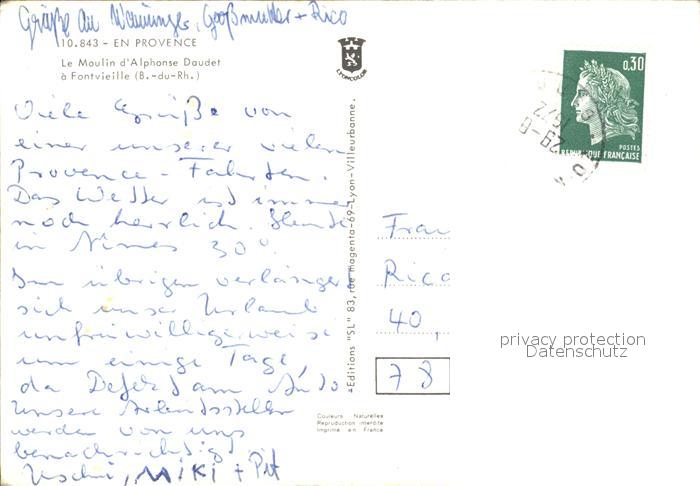 Grüße an Großmutter + Rico
10.843 - EN PROVENCE
Le Moulin d'Alphonse Daudet
à Fontvieille (B.-du-Rh.)
LYONCOLOR
0,30
POSTES
RÉPUBLIQUE FRANÇAISE
29-8
1972
Viele Grüße von
einer unserer vielen
Provence - Fahrten.
Das Wetter ist immer
noch herrlich. Heute
in Nimes 30°.
Im übrigen verlängert
sich unser Urlaub
unfreiwilligerweise
um einige Tage,
da Defekt am Auto
Unsere Arbeitsstellen
werden von uns
benachrichtigt.
Uschi, MIKI + Pit
Editions "SL" 83, rue magenta-69-Lyon-Villeurbanne.
Frau
Rico
40,
78
privacy protection
Datenschutz
Couleurs Naturelles
Reproduction interdite
Imprimé en France